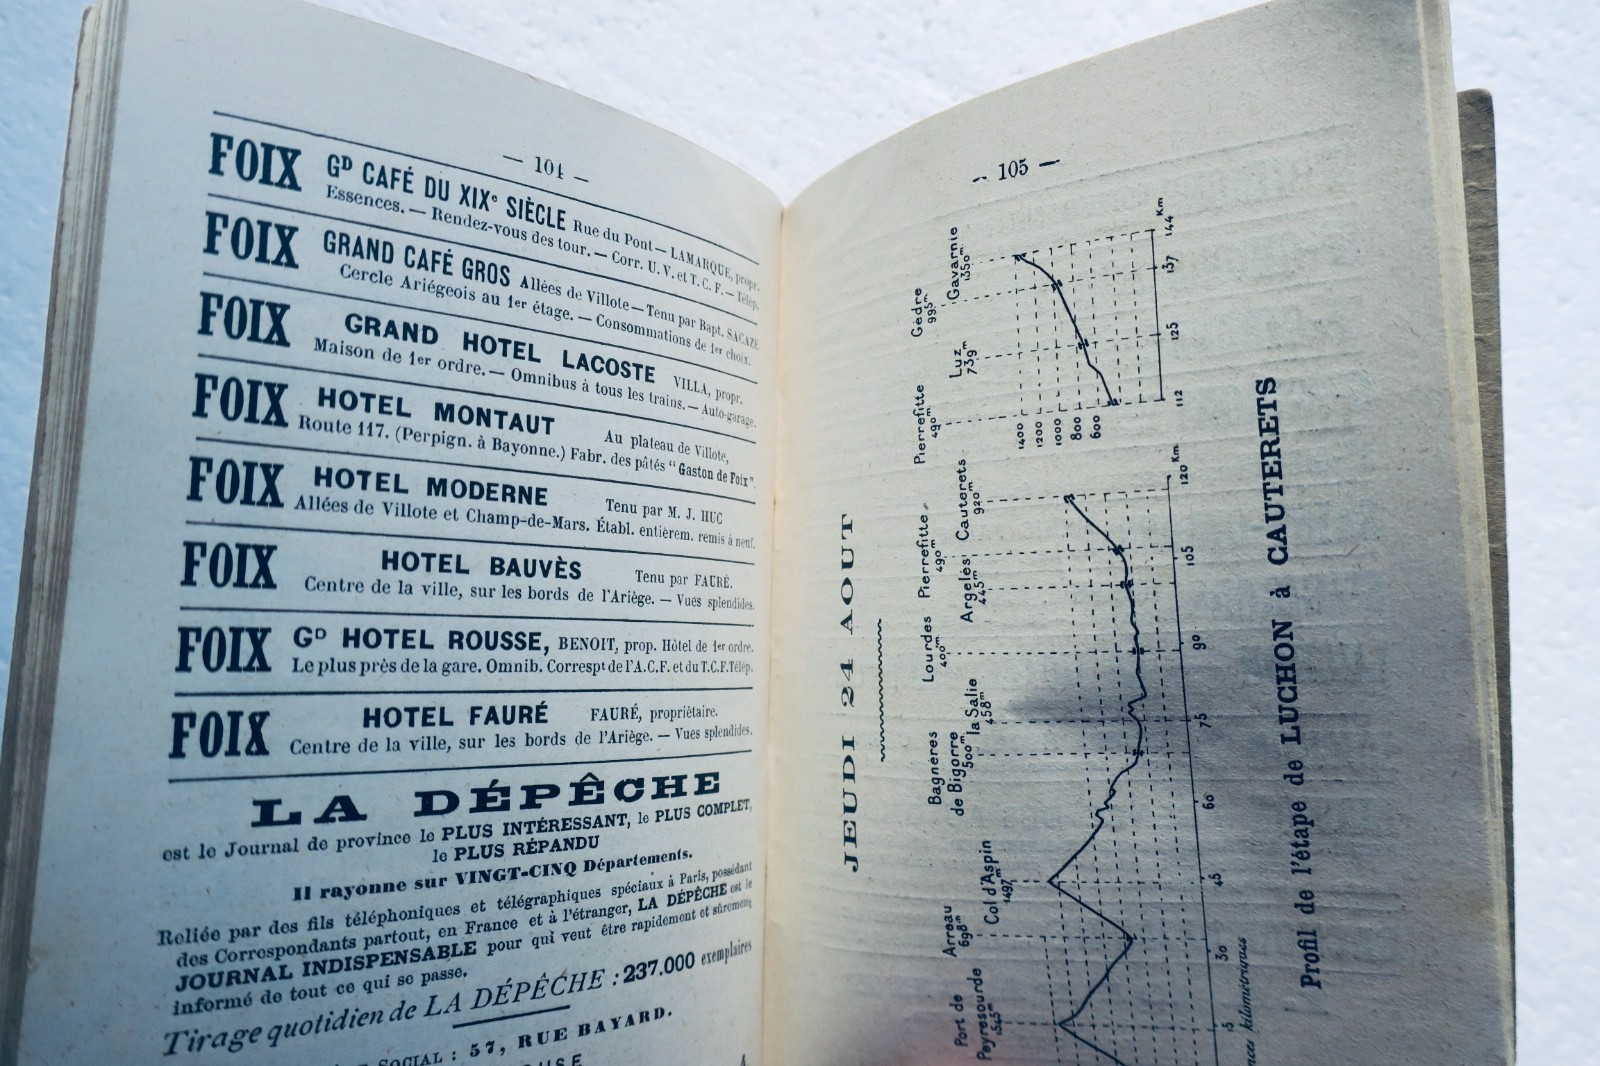 — 104 —
FOIX GD CAFÉ DU XIXe SIÈCLE Rue du Pont — LAMARQUE, propr.
Essences. — Rendez-vous des tour. — Corr. U. V. et T. C. F. — Télép.
FOIX GRAND CAFÉ GROS Allées de Villote — Tenu par Bapt. SACAZE
Cercle Ariégeois au 1er étage. — Consommations de 1er choix.
FOIX GRAND HOTEL LACOSTE VILLA, propr.
Maison de 1er ordre. — Omnibus à tous les trains. — Auto-garage.
FOIX HOTEL MONTAUT Au plateau de Villote,
Route 117. (Perpign. à Bayonne.) Fabr. des pâtés "Gaston de Foix".
FOIX HOTEL MODERNE Tenu par M. J. HUC
Allées de Villote et Champ-de-Mars. Établ. entièrem. remis à neuf.
FOIX HOTEL BAUVÈS Tenu par FAURÉ.
Centre de la ville, sur les bords de l'Ariège. — Vues splendides.
FOIX GD HOTEL ROUSSE, BENOIT, prop. Hôtel de 1er ordre.
Le plus près de la gare. Omnib. Correspt de l'A.C.F. et du T.C.F. Télép.
FOIX HOTEL FAURÉ FAURÉ, propriétaire.
Centre de la ville, sur les bords de l'Ariège. — Vues splendides.
LA DÉPÊCHE
est le Journal de province le PLUS INTÉRESSANT, le PLUS COMPLET,
le PLUS RÉPANDU
Il rayonne sur VINGT-CINQ Départements.
Reliée par des fils téléphoniques et télégraphiques spéciaux à Paris, possédant
des Correspondants partout, en France et à l'étranger, LA DÉPÊCHE est le
JOURNAL INDISPENSABLE pour qui veut être rapidement et sûrement
informé de tout ce qui se passe.
Tirage quotidien de LA DÉPÊCHE : 237.000 exemplaires
SOCIAL : 57, RUE BAYARD.
— 105 —
JEUDI 24 AOUT
Port de
Peyresourde
1545m
Arreau
698m
Col d'Aspin
1497m
Bagnères
de Bigorre
500m
la Salie
458m
Lourdes
400m
Argelès
445m
Pierrefitte
490m
Cauterets
920m
Pierrefitte
490m
Luz
739m
Gèdre
995m
Gavarnie
1350m
1400
1200
1000
800
600
30 45 60 75 90 105 120 Km
112 125 137 144 Km
kilométriques
Profil de l'étape de LUCHON à CAUTERETS